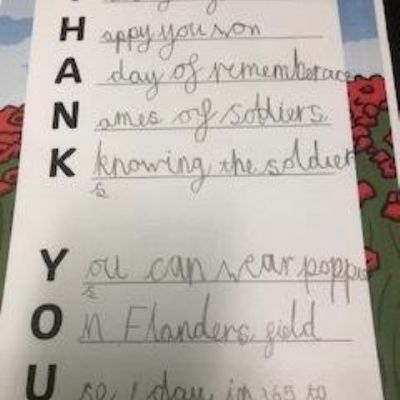 H appy you won
A day of rememberace
N ames of soldiers
K knowing the soldier
s
Y ou can wear poppie
s
O n Flanders field
U se 1 day in 365 to